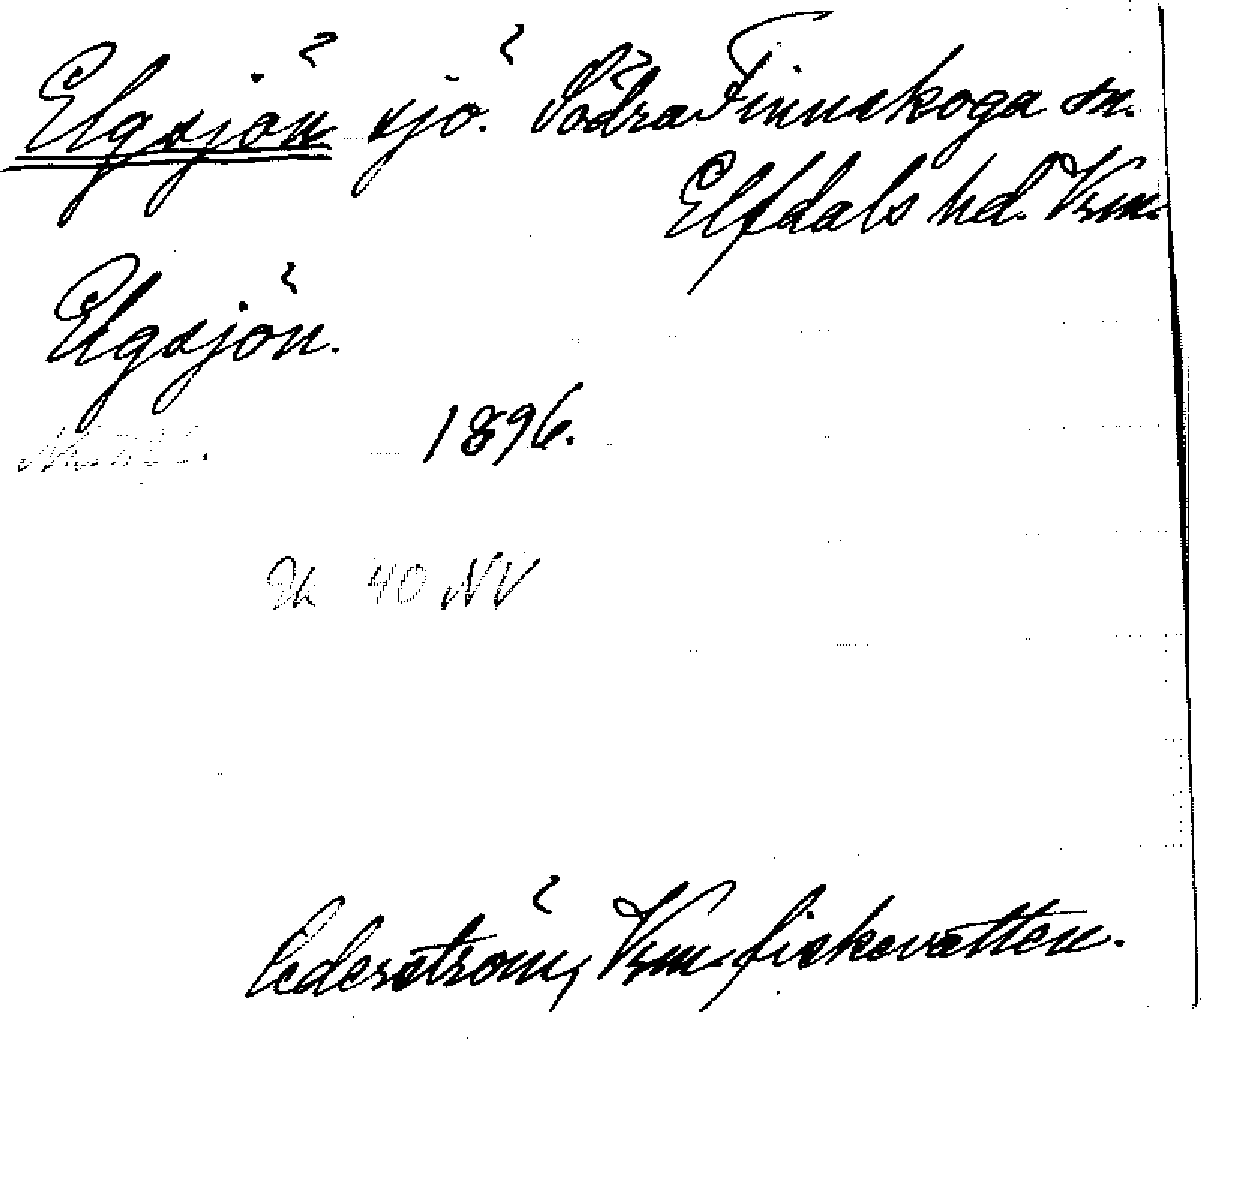 Elgsjön sjö. Södra Finnskoga sn.
Elfdals hd. Vrm.
Elgsjön.
1896.
Gk 40 NV
Cederström, Vrm. fiskevatten.